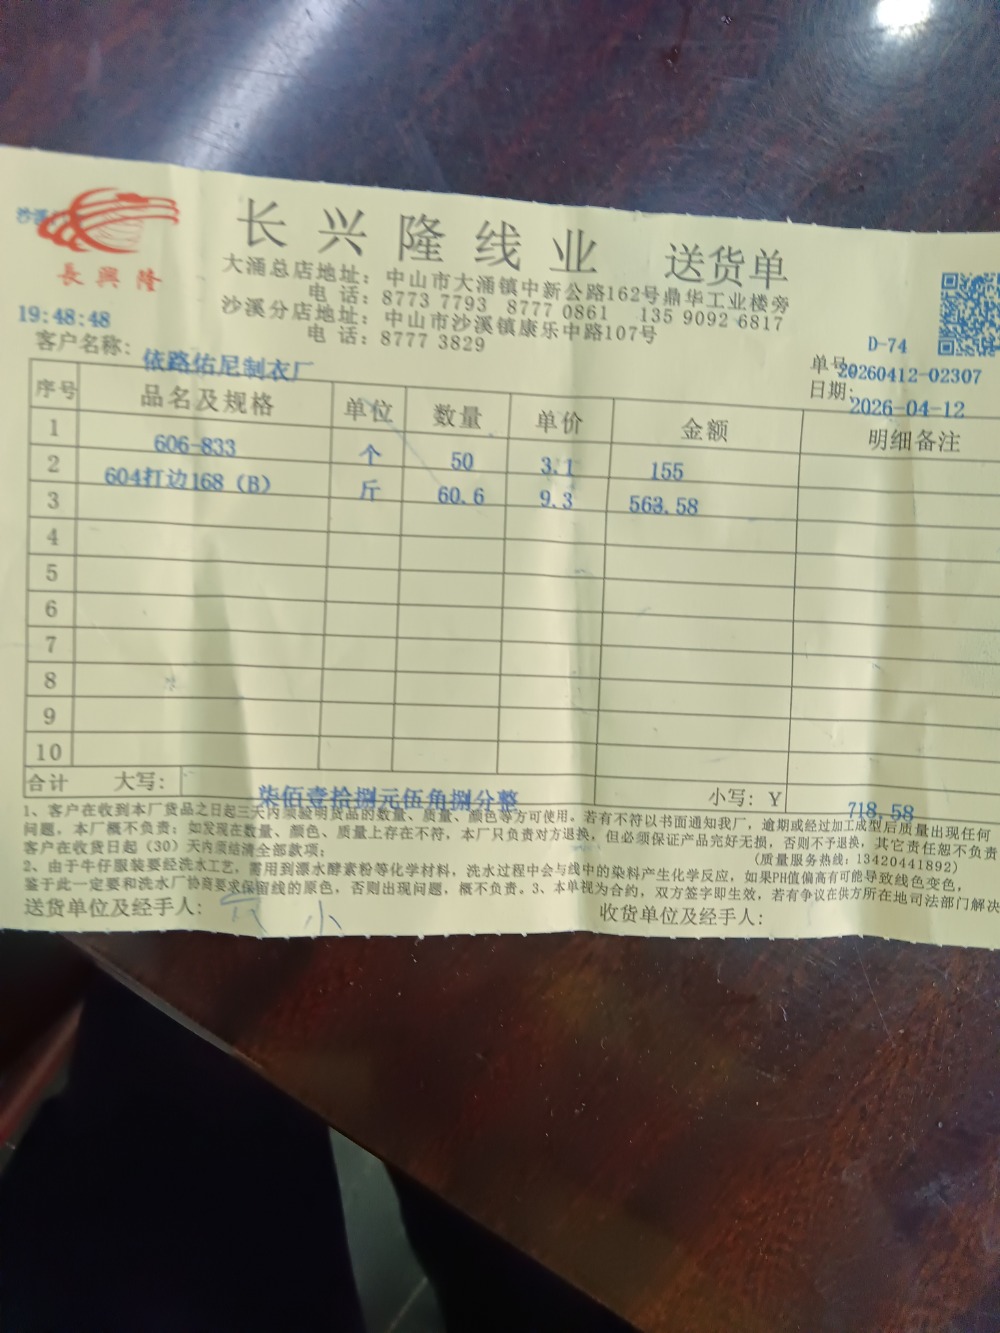 沙溪
長興隆
长兴隆线业 送货单
大涌总店地址：中山市大涌镇中新公路162号鼎华工业楼旁
电 话：8773 7793 8777 0861 135 9092 6817
沙溪分店地址：中山市沙溪镇康乐中路107号
电 话：8777 3829
19:48:48
D-74
客户名称：依路佑尼制衣厂
单号：20260412-02307
日期：2026-04-12
序号 品名及规格 单位 数量 单价 金额 明细备注
1 606-833 个 50 3.1 155
2 604打边168（B） 斤 60.6 9.3 563.58
3
4
5
6
7
8
9
10
合计 大写：柒佰壹拾捌元伍角捌分整 小写：Y 718.58
1、客户在收到本厂货品之日起三天内须验明货品的数量、质量、颜色等方可使用。若有不符以书面通知我厂，逾期或经过加工成型后质量出现任何
问题，本厂概不负责；如发现在数量、颜色、质量上存在不符，本厂只负责对方退换，但必须保证产品完好无损，否则不予退换，其它责任恕不负责
客户在收货日起（30）天内须结清全部款项；
（质量服务热线：13420441892）
2、由于牛仔服装要经洗水工艺，需用到漂水酵素粉等化学材料，洗水过程中会与线中的染料产生化学反应，如果PH值偏高有可能导致线色变色，
鉴于此一定要和洗水厂协商要求保留线的原色，否则出现问题，概不负责。3、本单视为合约，双方签字即生效，若有争议在供方所在地司法部门解决
送货单位及经手人：
收货单位及经手人：